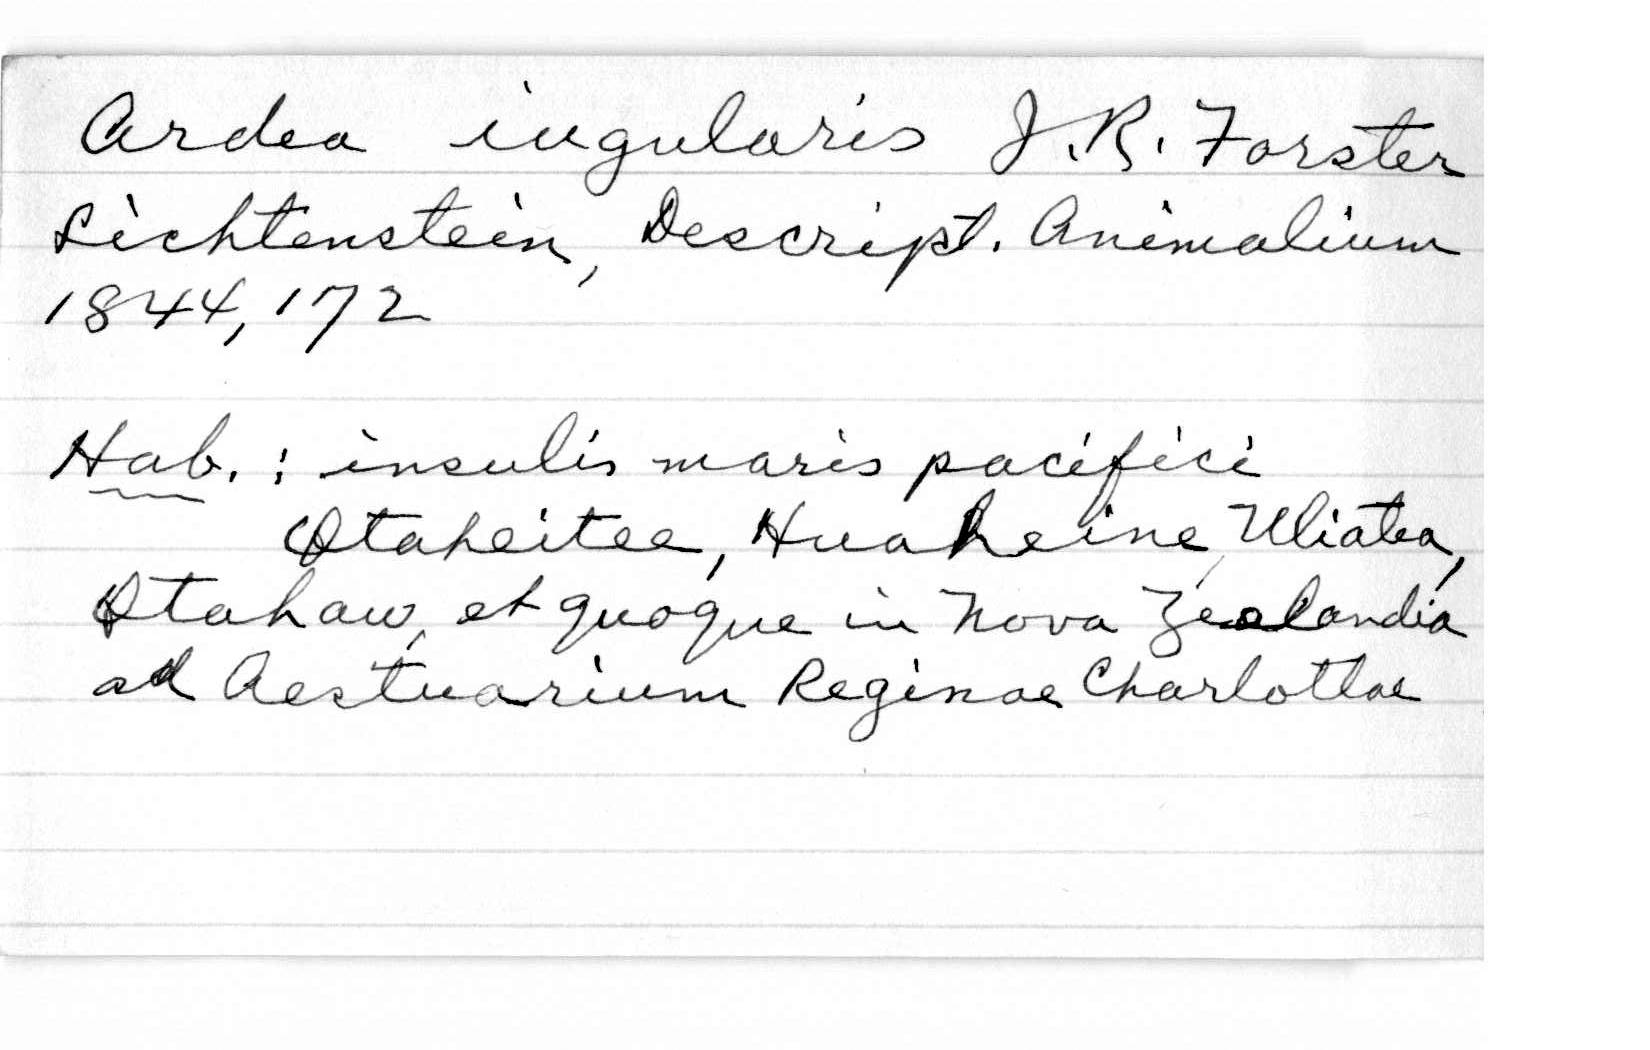 Ardea iugularis J. R. Forster
Lichtenstein, Descript. Animalium
1844, 172
Hab. : insulis maris pacifici
Otaheitee, Huaheine, Uliatea,
Otahaw, et quoque in Nova Zealandia
ad Aestuarium Reginae Charlottae